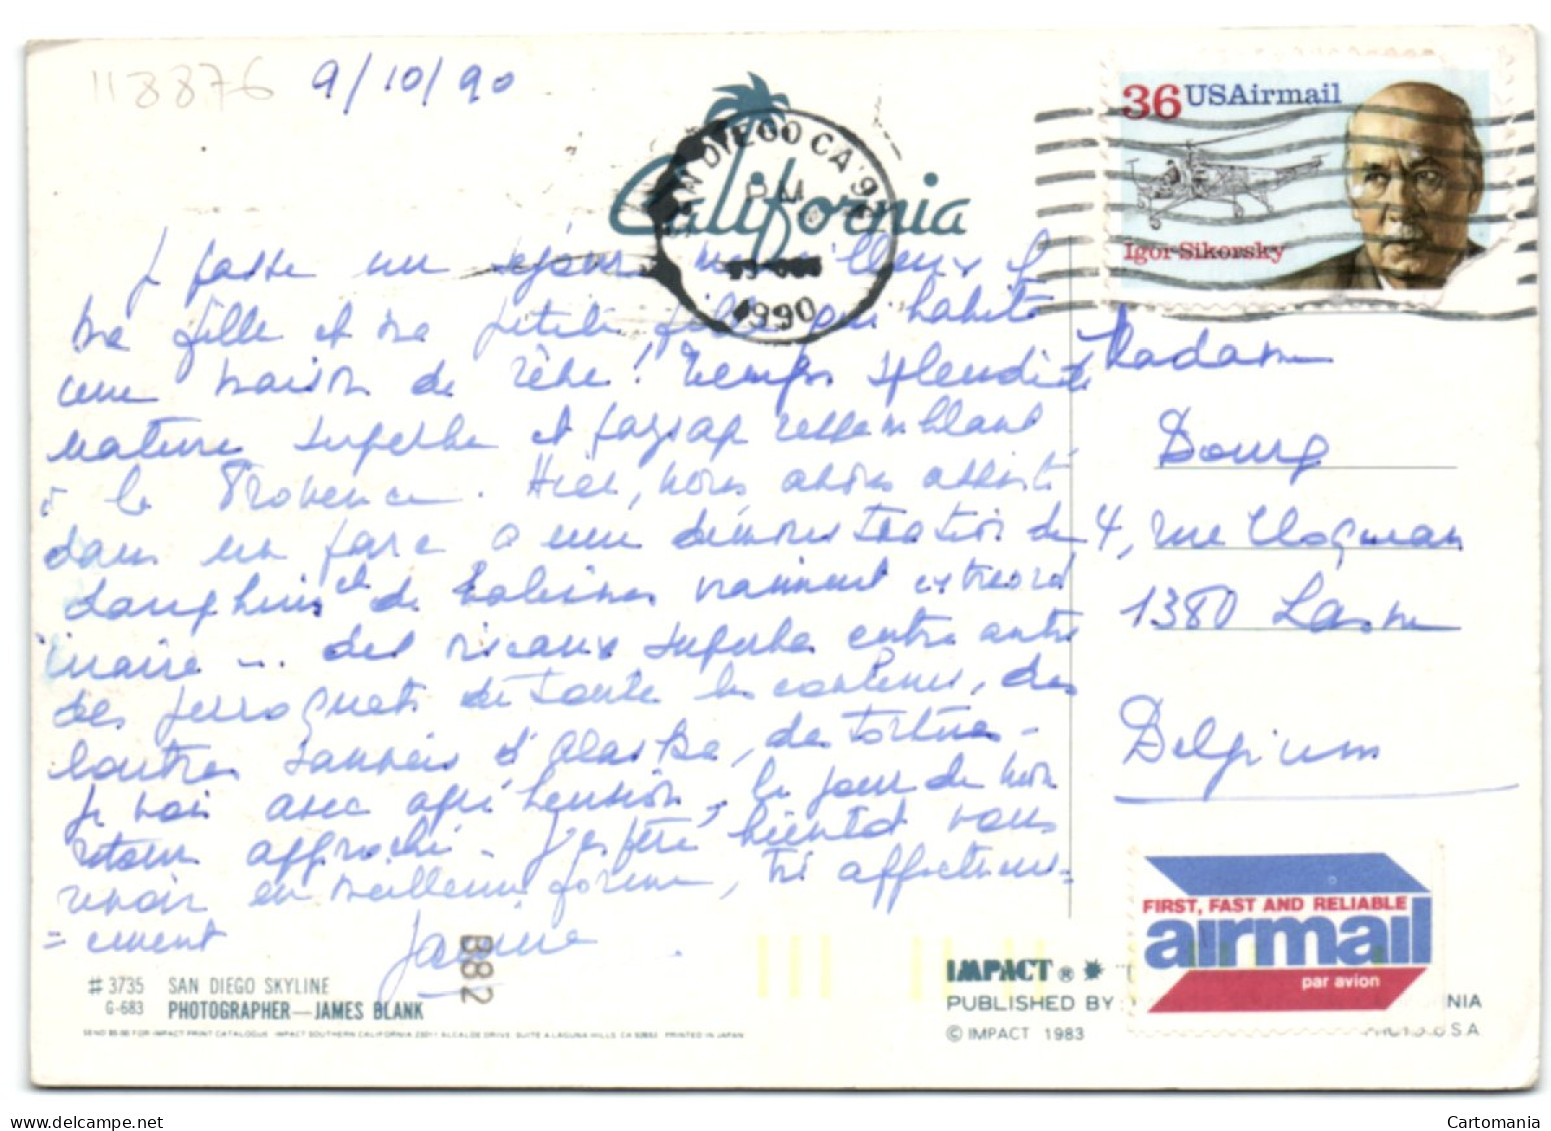 118876 9/10/90
California
SAN DIEGO CA
PM
1990
36 USAirmail
Igor Sikorsky
Je passe un séjour merveilleux
ma fille et ma petite fille qui habite
une maison de rêve! Temps splendide
nature superbe et paysage ressemblant
à la Provence. Hier, nous avons assisté
dans un parc à une démonstration de
dauphins et de baleines vraiment extraord
inaire ... des oiseaux superbe entre autre
des perroquets de toute les couleurs, des
loutres sauvées d'Alaska, des tortues -
Je vois avec appréhension, le jour de mon
retour approché - J'espère bientôt vous
revoir en meilleure forme, très affectueus=
=ement Janine
Madame
Bourg
4, rue
1380 Lasne
Belgium
FIRST, FAST AND RELIABLE
airmail
par avion
B82
# 3735 SAN DIEGO SKYLINE
G-683 PHOTOGRAPHER—JAMES BLANK
SEND $5.00 FOR IMPACT PRINT CATALOGUE IMPACT SOUTHERN CALIFORNIA 23011 ALCALDE DRIVE, SUITE A LAGUNA HILLS, CA 92653 PRINTED IN JAPAN
IMPACT ®
PUBLISHED BY: NIA
© IMPACT 1983 U.S.A
Cartomania